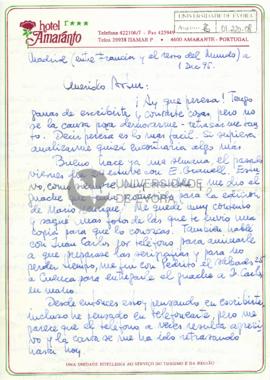 hotel
Amaranto
★★★
Telefone 422106/7 - Fax 425949
Telex 29938 HAMAR P • 4600 AMARANTE - PORTUGAL
UNIVERSIDADE DE ÉVORA
Madrid (entre Francia y el resto del Mundo) a
1 Dic 95.
Querido
¡Ay que pereza! Tengo
ganas de escribirte y contarte cosas, pero no
se la causa para demorarme - retrasarme tanto.
Decir pereza es lo más fácil. Si supiera
analizarme quizá encontraría algo más.
Bueno hace ya una semana, el pasado
viernes
me dió el
para la edición
de Mario
Me quedé muy contento
y saqué unas fotos de las que te envío una
copia para que lo conozcas. También hablé
con Juan Carlos por teléfono para animarle
a que preparase las serigrafías y para no
perder tiempo, me fui con Pedrito el sábado 25
a Cuenca para entregarle el grache a J. Carlos
en mano.
Desde entonces sigo pensando en escribirte
incluso he pensado en telefonearte, pero me
parece que el teléfono a veces resulta agresivo
y la carta se me ha ido retrasando
hasta hoy.
UMA UNIDADE HOTELEIRA AO SERVIÇO DO TURISMO E DA REGIÃO
UNIVERSIDADE
DE ÉVORA